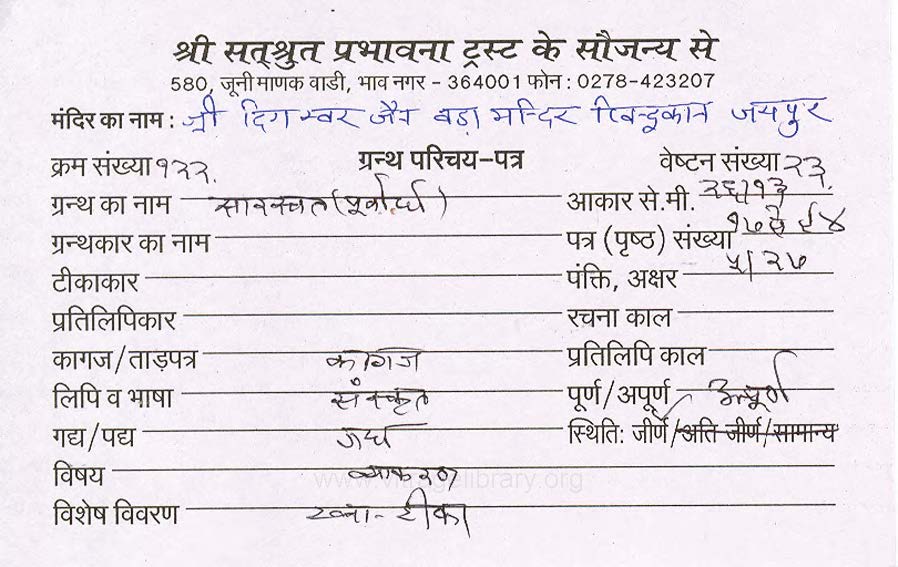 श्री सत्श्रुत प्रभावना ट्रस्ट के सौजन्य से
580, जूनी माणक वाडी, भाव नगर - 364001 फोन : 0278-423207
मंदिर का नाम : श्री दिगम्बर जैन बड़ा मन्दिर जयपुर
क्रम संख्या १२२. ग्रन्थ परिचय-पत्र वेष्टन संख्या २३.
ग्रन्थ का नाम सारस्वत (पूर्वार्ध) आकार से.मी. २६/१३
ग्रन्थकार का नाम पत्र (पृष्ठ) संख्या
टीकाकार पंक्ति, अक्षर ५/२७
प्रतिलिपिकार रचना काल
कागज/ताड़पत्र कागज प्रतिलिपि काल
लिपि व भाषा संस्कृत पूर्ण/अपूर्ण अपूर्ण
गद्य/पद्य स्थिति: जीर्ण/अति जीर्ण/सामान्य
विषय व्याकरण
www.vitragelibrary.org
विशेष विवरण टीका